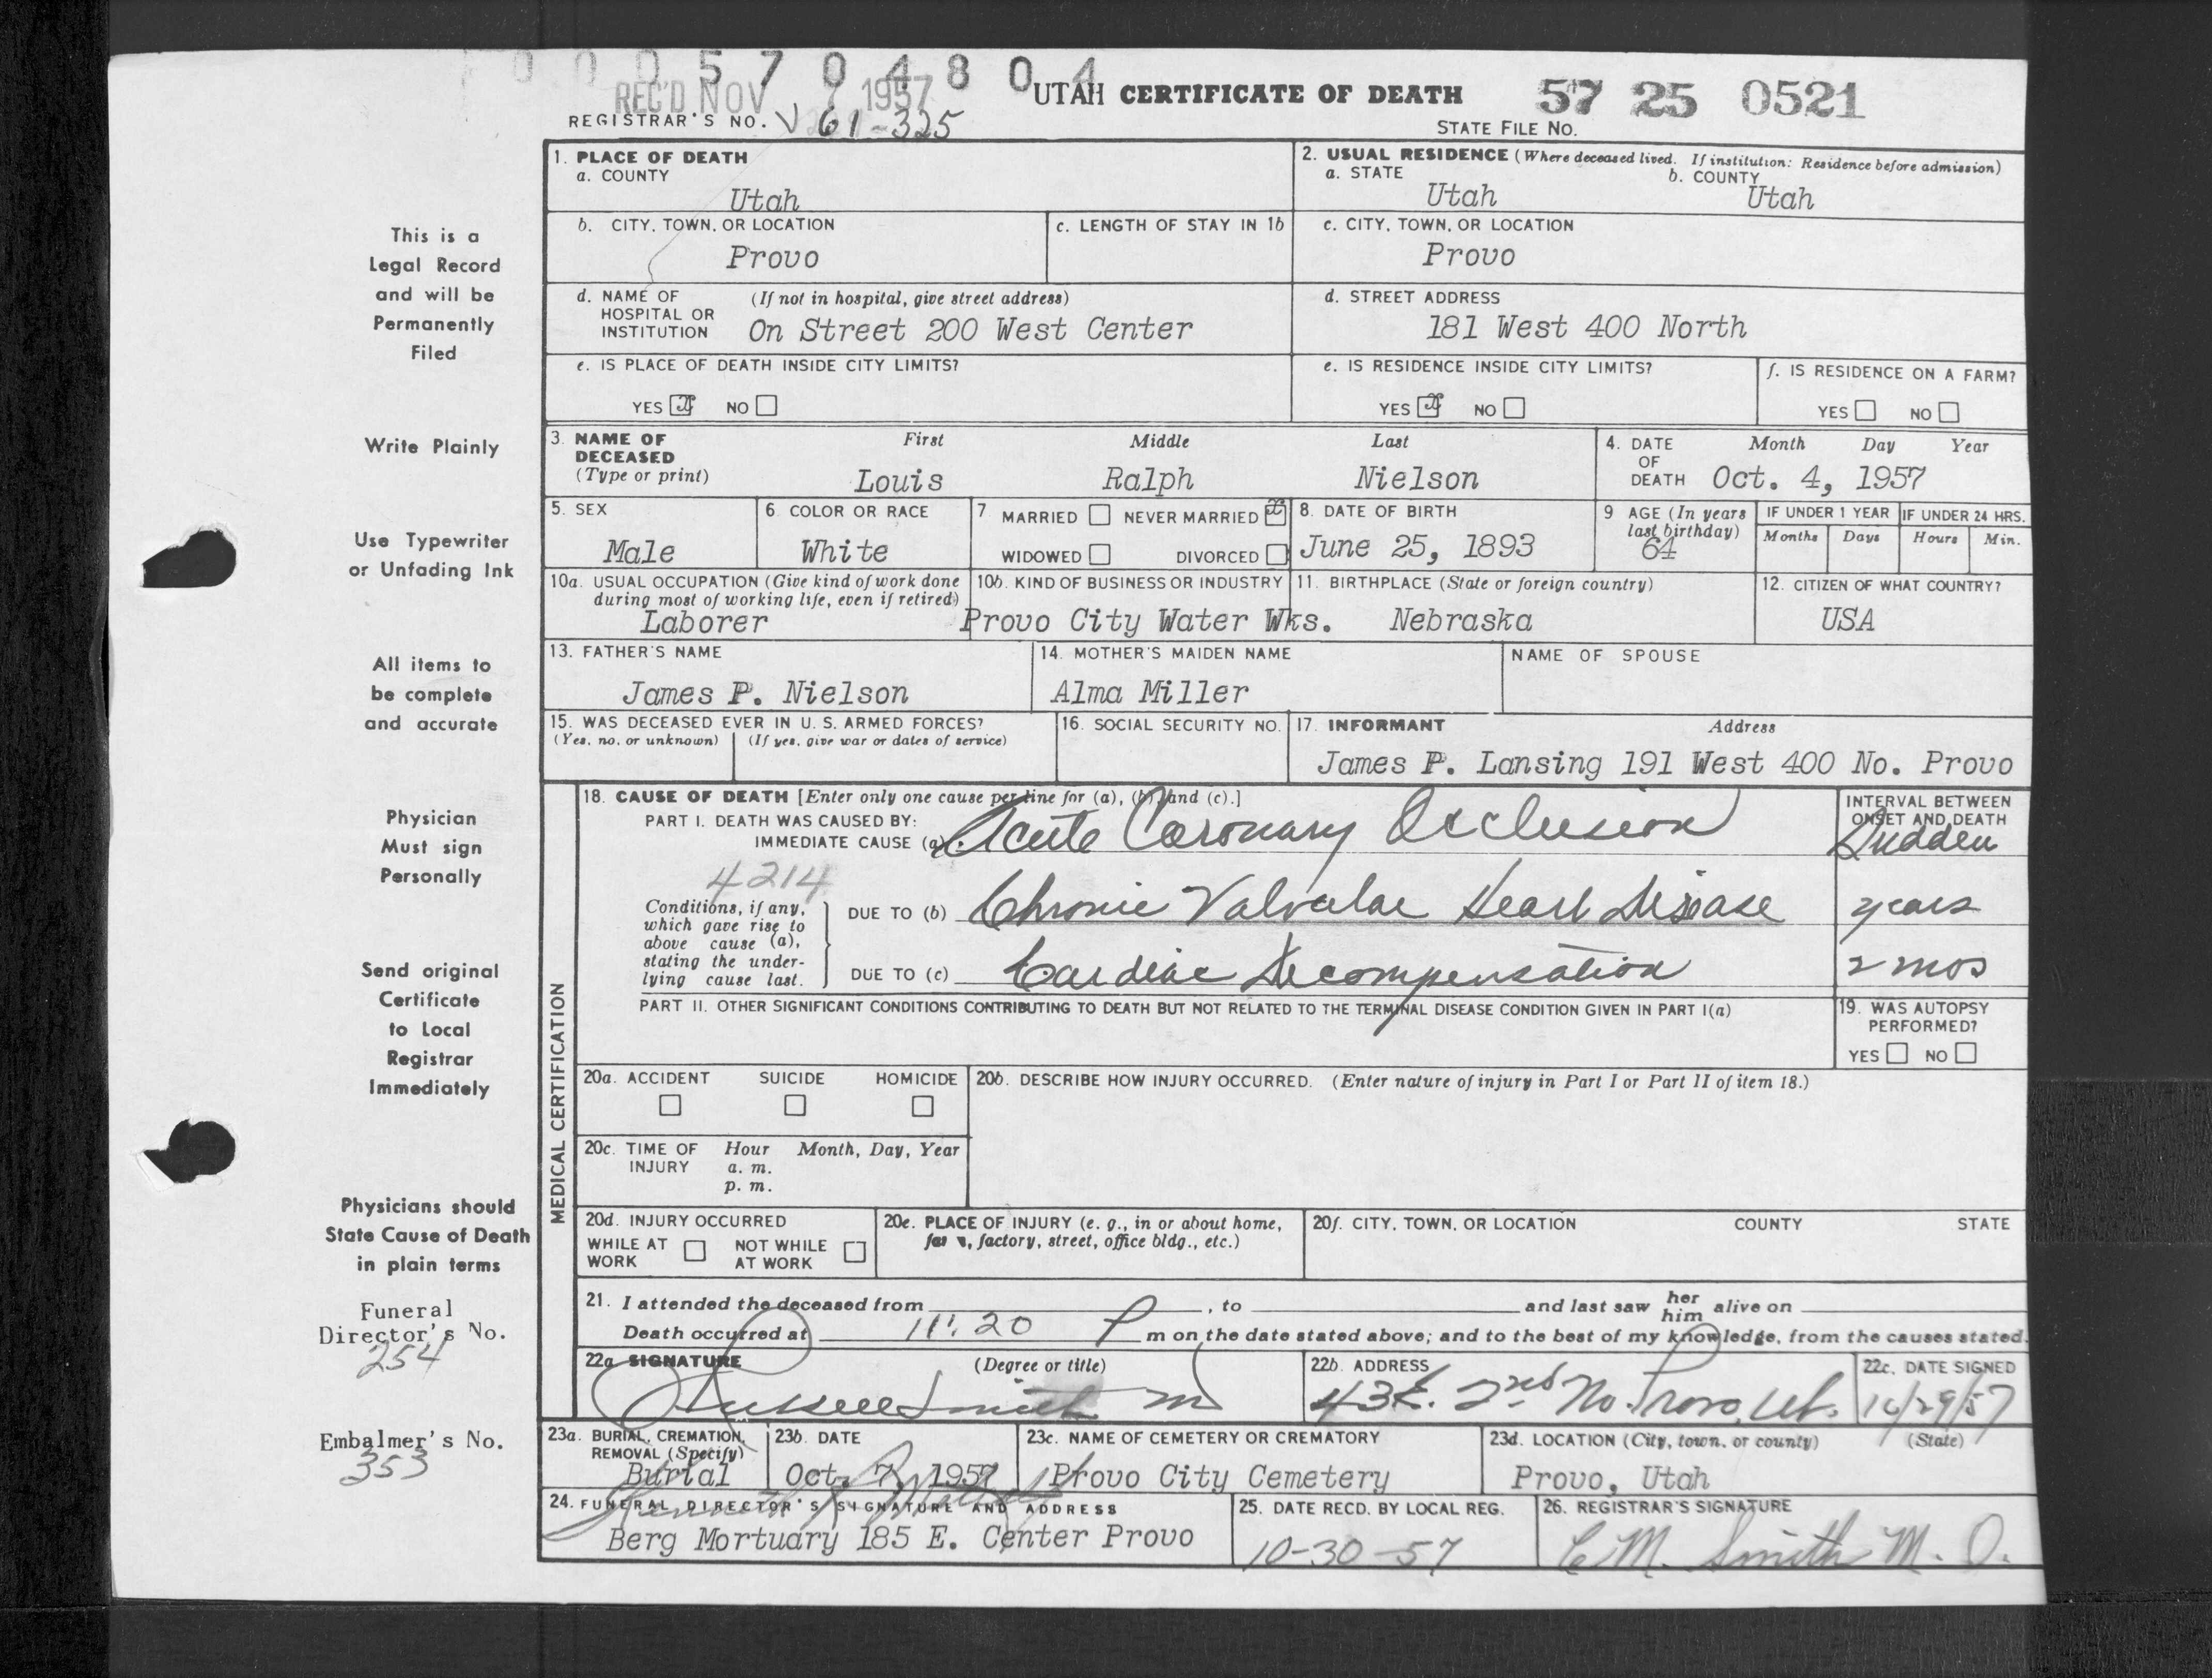 0005704804
REC'D NOV 7 1957
UTAH CERTIFICATE OF DEATH
57 25 0521
REGISTRAR'S NO. V 61-325
STATE FILE NO.
This is a
Legal Record
and will be
Permanently
Filed
Write Plainly
Use Typewriter
or Unfading Ink
All items to
be complete
and accurate
Physician
Must sign
Personally
Send original
Certificate
to Local
Registrar
Immediately
Physicians should
State Cause of Death
in plain terms
Funeral
Director's No.
254
Embalmer's No.
353
1. PLACE OF DEATH
a. COUNTY
Utah
2. USUAL RESIDENCE (Where deceased lived. If institution: Residence before admission)
a. STATE
Utah
b. COUNTY
Utah
b. CITY, TOWN, OR LOCATION
Provo
c. LENGTH OF STAY IN 1b
c. CITY, TOWN, OR LOCATION
Provo
d. NAME OF HOSPITAL OR INSTITUTION
(If not in hospital, give street address)
On Street 200 West Center
d. STREET ADDRESS
181 West 400 North
e. IS PLACE OF DEATH INSIDE CITY LIMITS?
YES X NO
e. IS RESIDENCE INSIDE CITY LIMITS?
YES X NO
f. IS RESIDENCE ON A FARM?
YES NO
3. NAME OF DECEASED
(Type or print)
First
Louis
Middle
Ralph
Last
Nielson
4. DATE OF DEATH
Month Day Year
Oct. 4, 1957
5. SEX
Male
6. COLOR OR RACE
White
7. MARRIED NEVER MARRIED X
WIDOWED DIVORCED
8. DATE OF BIRTH
June 25, 1893
9 AGE (In years last birthday)
64
IF UNDER 1 YEAR
Months Days
IF UNDER 24 HRS.
Hours Min.
10a. USUAL OCCUPATION (Give kind of work done
during most of working life, even if retired)
Laborer
10b. KIND OF BUSINESS OR INDUSTRY
Provo City Water Wks.
11. BIRTHPLACE (State or foreign country)
Nebraska
12. CITIZEN OF WHAT COUNTRY?
USA
13. FATHER'S NAME
James P. Nielson
14. MOTHER'S MAIDEN NAME
Alma Miller
NAME OF SPOUSE
15. WAS DECEASED EVER IN U. S. ARMED FORCES?
(Yes, no, or unknown) (If yes, give war or dates of service)
16. SOCIAL SECURITY NO.
17. INFORMANT Address
James P. Lansing 191 West 400 No. Provo
MEDICAL CERTIFICATION
18. CAUSE OF DEATH [Enter only one cause per line for (a), (b), and (c).]
PART I. DEATH WAS CAUSED BY:
IMMEDIATE CAUSE (a) Acute Coronary Occlusion
INTERVAL BETWEEN
ONSET AND DEATH
Sudden
4214
Conditions, if any,
which gave rise to
above cause (a),
stating the under-
lying cause last.
DUE TO (b) Chronic Valvular Heart Disease
years
DUE TO (c) Cardiac Decompensation
2 mos
PART II. OTHER SIGNIFICANT CONDITIONS CONTRIBUTING TO DEATH BUT NOT RELATED TO THE TERMINAL DISEASE CONDITION GIVEN IN PART I(a)
19. WAS AUTOPSY
PERFORMED?
YES NO
20a. ACCIDENT SUICIDE HOMICIDE
20b. DESCRIBE HOW INJURY OCCURRED. (Enter nature of injury in Part I or Part II of item 18.)
20c. TIME OF INJURY
Hour Month, Day, Year
a. m.
p. m.
20d. INJURY OCCURRED
WHILE AT WORK
NOT WHILE AT WORK
20e. PLACE OF INJURY (e. g., in or about home,
farm, factory, street, office bldg., etc.)
20f. CITY, TOWN, OR LOCATION COUNTY STATE
21. I attended the deceased from , to and last saw her him alive on
Death occurred at 11:20 P m on the date stated above; and to the best of my knowledge, from the causes stated.
22a SIGNATURE (Degree or title)
Russell Smith M
22b. ADDRESS
43 E. 2nd No. Provo, Ut.
22c. DATE SIGNED
10/29/57
23a. BURIAL, CREMATION,
REMOVAL (Specify)
Burial
23b. DATE
Oct. 7, 1957
23c. NAME OF CEMETERY OR CREMATORY
Provo City Cemetery
23d. LOCATION (City, town, or county) (State)
Provo, Utah
24. FUNERAL DIRECTOR'S SIGNATURE AND ADDRESS
Berg Mortuary 185 E. Center Provo
25. DATE RECD. BY LOCAL REG.
10-30-57
26. REGISTRAR'S SIGNATURE
C M. Smith M. D.